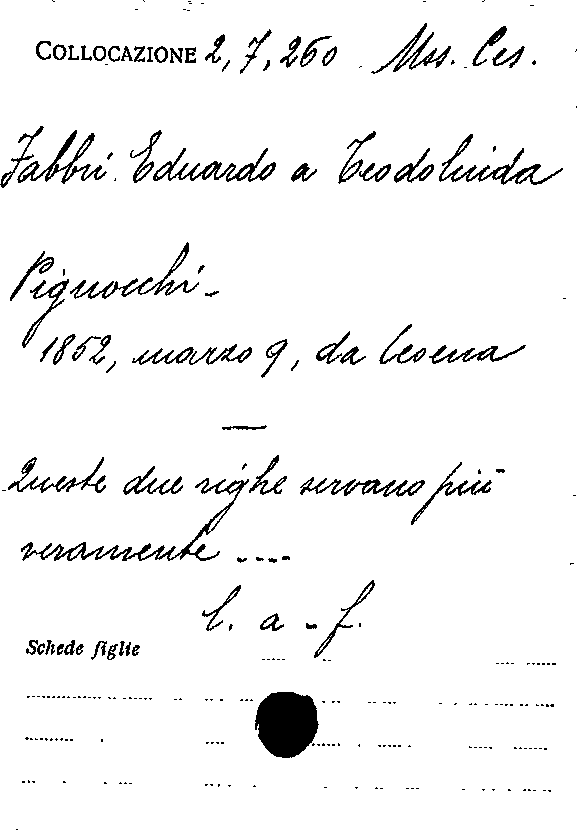 COLLOCAZIONE 2, 7, 260 Mss. Ces.
Fabbri Eduardo a Teodolinda
Pignocchi -
1852, marzo 9, da Cesena
—
Queste due righe servano più
veramente ....
l. a - f.
Schede figlie